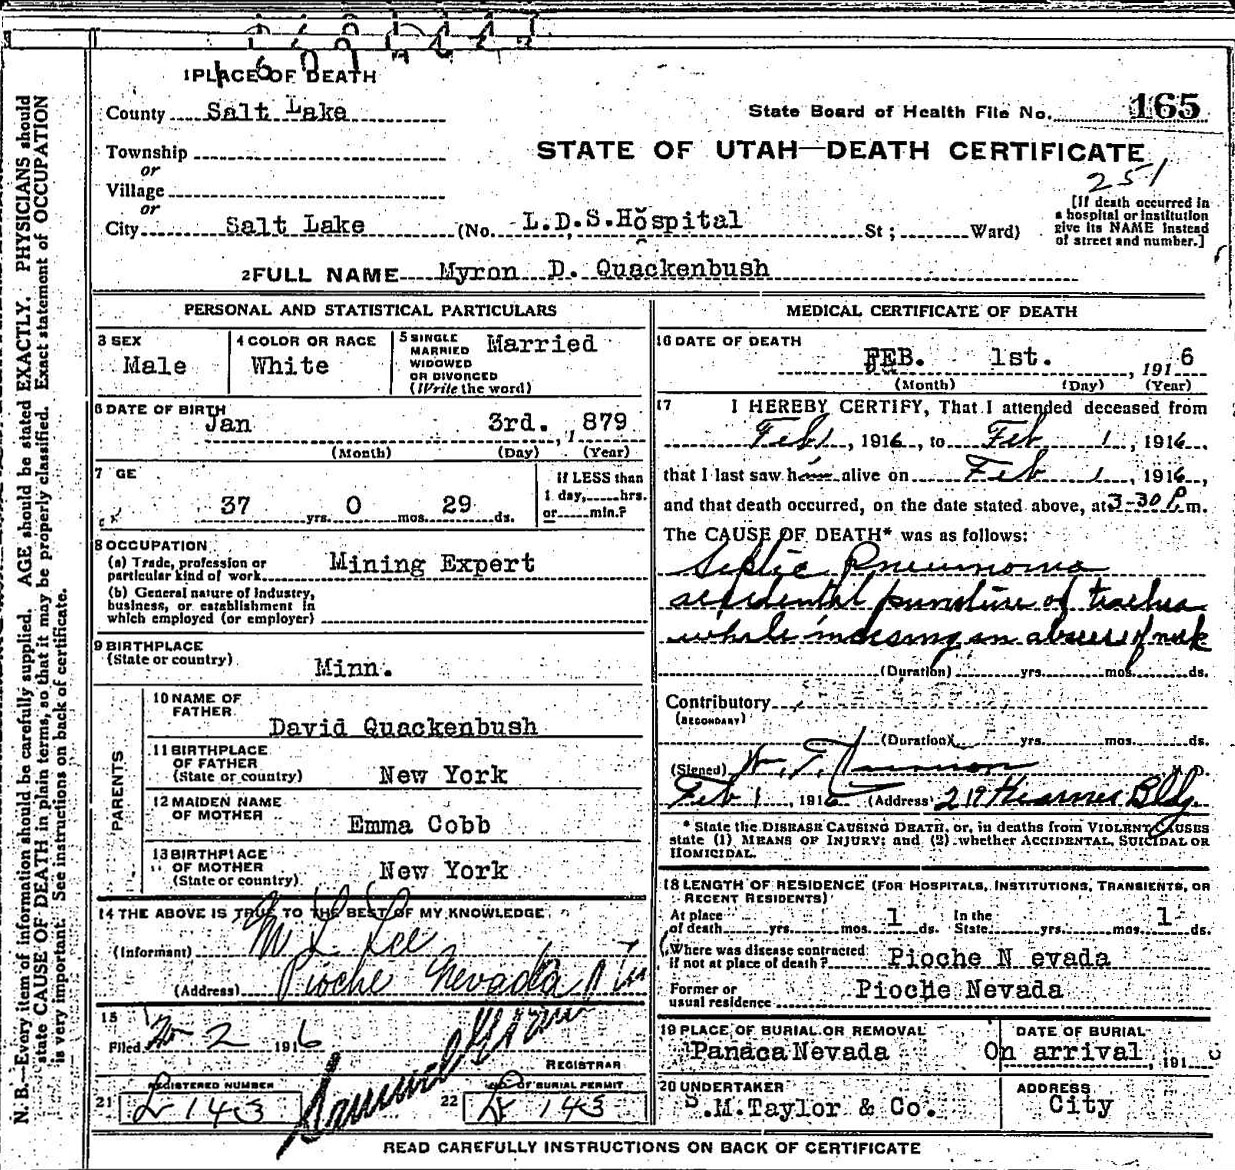 1 PLACE OF DEATH
County Salt Lake
State Board of Health File No. 165
Township
or
Village
or
STATE OF UTAH—DEATH CERTIFICATE
251
[If death occurred in
a hospital or institution
give its NAME instead
of street and number.]
City Salt Lake (No. L.D.S.Hospital St; Ward)
2 FULL NAME Myron D. Quackenbush
PERSONAL AND STATISTICAL PARTICULARS
3 SEX
Male
4 COLOR OR RACE
White
5 SINGLE
MARRIED
WIDOWED
OR DIVORCED
(Write the word)
Married
6 DATE OF BIRTH
Jan 3rd. , 1 879
(Month) (Day) (Year)
7 GE
37 yrs. 0 mos. 29 ds.
If LESS than
1 day, hrs.
or min.?
8 OCCUPATION
(a) Trade, profession or
particular kind of work Mining Expert
(b) General nature of Industry,
business, or establishment in
which employed (or employer)
9 BIRTHPLACE
(State or country) Minn.
PARENTS
10 NAME OF
FATHER
David Quackenbush
11 BIRTHPLACE
OF FATHER
(State or country) New York
12 MAIDEN NAME
OF MOTHER
Emma Cobb
13 BIRTHPLACE
OF MOTHER
(State or country) New York
14 THE ABOVE IS TRUE TO THE BEST OF MY KNOWLEDGE
(Informant) M L Lee
(Address) Pioche Nevada
15
Filed 2 1916
REGISTRAR
REGISTERED NUMBER
21 143
NO. OF BURIAL PERMIT
22 143
MEDICAL CERTIFICATE OF DEATH
16 DATE OF DEATH
FEB. 1st. , 191 6
(Month) (Day) (Year)
17 I HEREBY CERTIFY, That I attended deceased from
Feb 1 , 1916, to Feb 1 , 1916,
that I last saw him alive on Feb 1 , 1916,
and that death occurred, on the date stated above, at 3-30 P. m.
The CAUSE OF DEATH* was as follows:
Septic Pneumonia
accidental puncture of trachea
while incising an abscess of neck
(Duration) yrs. mos. ds.
Contributory
(SECONDARY)
(Duration) yrs. mos. ds.
(Signed)
Feb 1 , 1916 (Address) 219 Kearns Bldg.
* State the DISEASE CAUSING DEATH, or, in deaths from VIOLENT CAUSES
state (1) MEANS OF INJURY; and (2) whether ACCIDENTAL, SUICIDAL OR
HOMICIDAL.
18 LENGTH OF RESIDENCE (FOR HOSPITALS, INSTITUTIONS, TRANSIENTS, OR
RECENT RESIDENTS)
At place
of death yrs. mos. 1 ds.
In the
State yrs. mos. 1 ds.
Where was disease contracted
if not at place of death? Pioche N evada
Former or
usual residence Pioche Nevada
19 PLACE OF BURIAL OR REMOVAL
Panaca Nevada
DATE OF BURIAL
On arrival , 191
20 UNDERTAKER
S.M.Taylor & Co.
ADDRESS
City
READ CAREFULLY INSTRUCTIONS ON BACK OF CERTIFICATE
N. B.—Every item of information should be carefully supplied. AGE should be stated EXACTLY. PHYSICIANS should
state CAUSE OF DEATH in plain terms, so that it may be properly classified. Exact statement of OCCUPATION
is very important. See instructions on back of certificate.